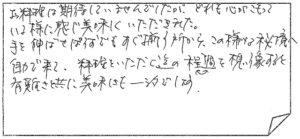 お料理は期待していませんでしたが、どれも心がこもって
いる様に感じ美味しくいただきました。
手を伸ばせばなんでもすぐ届く所から、この様な秘境へ
自力で来て、料理をいただく迄の程過を想像すると
有難さと共に美味しさも一しおでした。